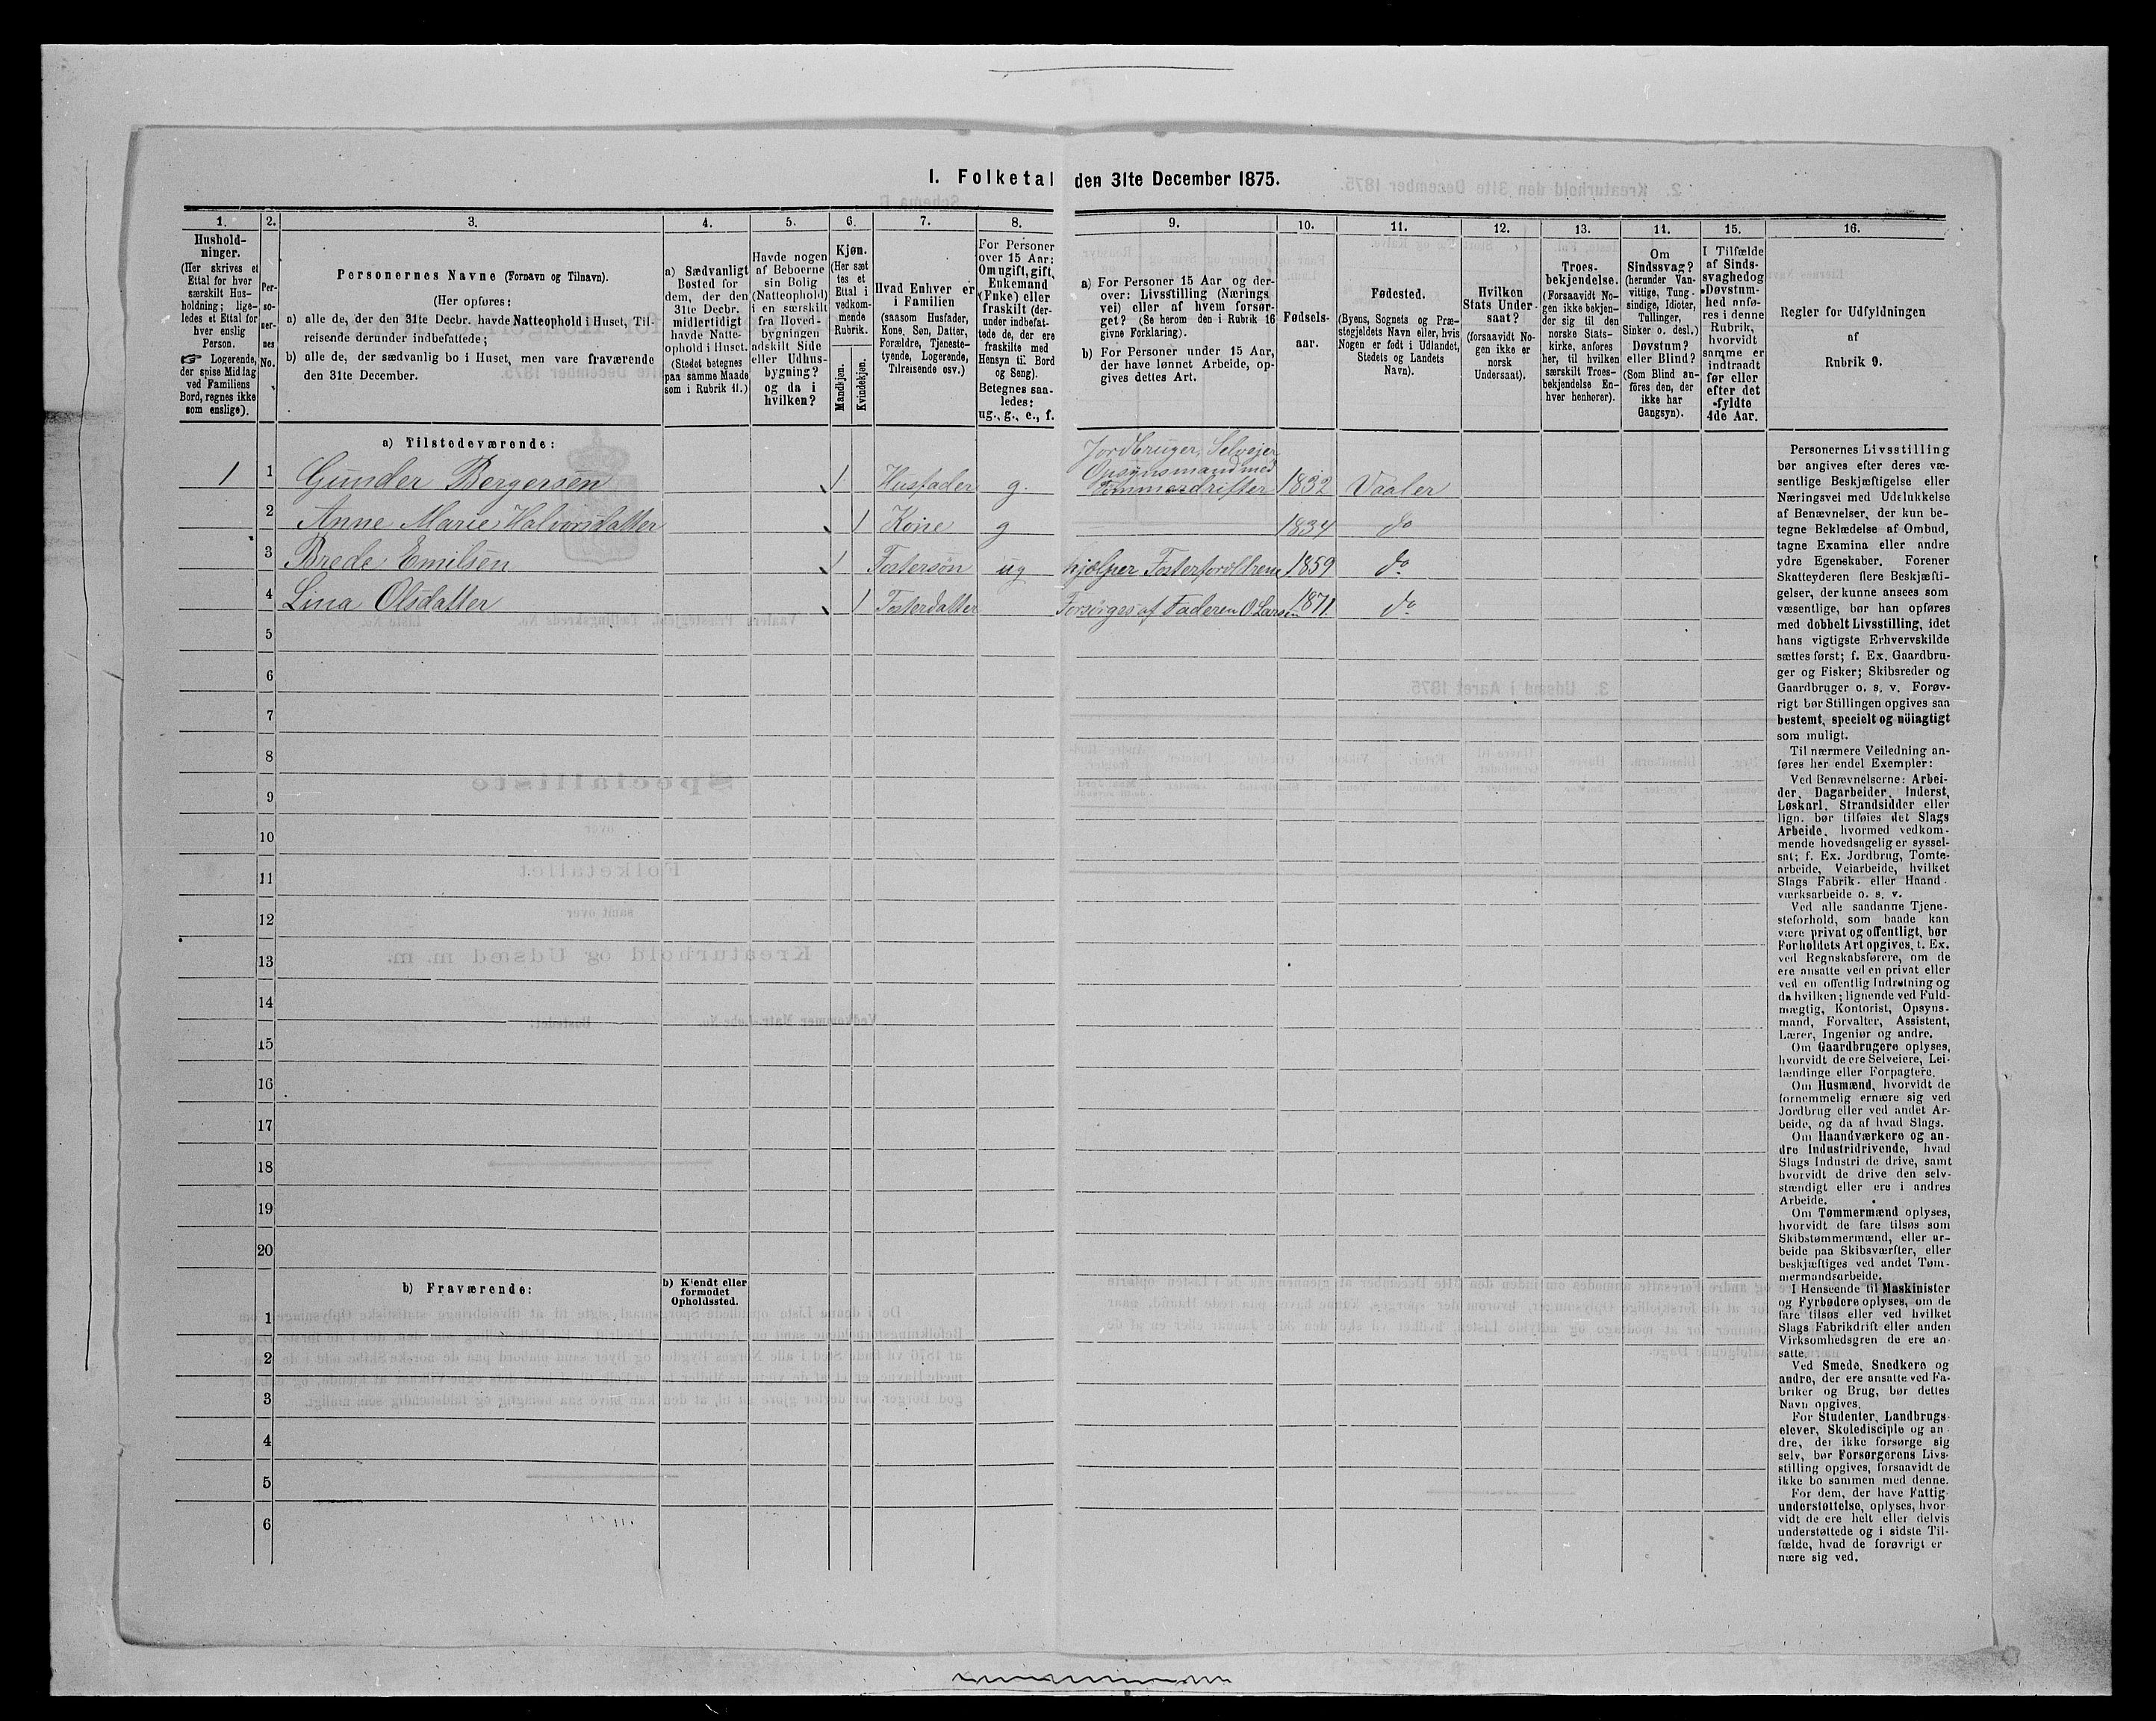 I. Folketal den 31te December 1875.
1. 2. 3. 4. 5. 6. 7. 8. 9. 10. 11. 12. 13. 14. 15. 16.
Hushold-
ninger.
(Her skrives et
Ettal for hver
særskilt Hus-
holdning; lige-
ledes et Ettal for
hver enslig
Person.
☞ Logerende,
der spise Middag
ved Familiens
Bord, regnes ikke
som enslige).
Per-
so-
ner-
nes
No.
Personernes Navne (Fornavn og Tilnavn).
(Her opføres:
a) alle de, der den 31te Decbr. havde Natteophold i Huset, Til-
reisende derunder indbefattede;
b) alle de, der sædvanlig bo i Huset, men vare fraværende
den 31te December.
a) Sædvanligt
Bosted for
dem, der den
31te Decbr.
midlertidigt
havde Natte-
ophold i Huset.
(Stedet betegnes
paa samme Maade
som i Rubrik 11.)
Havde nogen
af Beboerne
sin Bolig
(Natteophold)
i en særskilt
fra Hoved-
bygningen
adskilt Side
eller Udhus-
bygning?
og da i
hvilken?
Kjøn.
(Her sæt
tes et
Ettal i
vedkom-
mende
Rubrik.
Mandkjøn.
Kvindekjøn.
Hvad Enhver er
i Familien
(saasom Husfader,
Kone, Søn, Datter,
Forældre, Tjeneste-
tyende, Logerende,
Tilreisende osv.)
For Personer
over 15 Aar:
Om ugift, gift,
Enkemand
(Enke) eller
fraskilt (der-
under indbefat-
tede de, der ere
fraskilte med
Hensyn til Bord
og Seng).
Betegnes saa-
ledes:
ug., g., e., f.
a) For Personer 15 Aar og der-
over: Livsstilling (Nærings
vei) eller af hvem forsør-
get? (Se herom den i Rubrik 16
givne Forklaring).
b) For Personer under 15 Aar,
der have lønnet Arbeide, op-
gives dettes Art.
Fødsels-
aar.
Fødested.
(Byens, Sognets og Præ-
stegjeldets Navn eller, hvis
Nogen er født i Udlandet,
Stedets og Landets
Navn).
Hvilken
Stats Under-
saat?
(forsaavidt No-
gen ikke er
norsk
Undersaat).
Troes-
bekjendelse.
(Forsaavidt No-
gen ikke bekjen-
der sig til den
norske Stats-
kirke, anføres
her, til hvilken
særskilt Troes-
bekjendelse En-
hver henhører).
Om
Sindssvag?
(herunder Van-
vittige, Tung-
sindige, Idioter,
Tullinger,
Sinker o. desl.)
Døvstum?
eller Blind?
(Som Blind an-
føres den, der
ikke har
Gangsyn).
I Tilfælde
af Sinds-
svaghed og
Døvstum-
hed anfø-
res i denne
Rubrik,
hvorvidt
samme er
indtraadt
før eller
efter det
fyldte
4de Aar.
Regler for Udfyldningen
af
Rubrik 9.
a) Tilstedeværende:
Jordbruger, Selveier
Opsynsmand med
1 1 Gunder Bergersen 1 Husfader g. Tømmerdrifter 1832 Vaaler
2 Anne Marie Halvorsdatter 1 Kone g 1834 do
3 Brede Emilsen 1 Fostersøn ug hjælper Fosterforældrene 1859 do
4 Lina Olsdatter 1 Fosterdatter Forsørges af Faderen O Larsen 1871 do
5
6
7
8
9
10
11
12
13
14
15
16
17
18
19
20
b) Fraværende:
b) Kjendt eller
formodet
Opholdssted.
1
2
3
4
5
6
Personernes Livsstilling
bør angives efter deres væ-
sentlige Beskjæftigelse eller
Næringsvei med Udelukkelse
af Benævnelser, der kun be-
tegne Beklædelse af Ombud,
tagne Examina eller andre
ydre Egenskaber. Forener
Skatteyderen flere Beskjæfti-
gelser, der kunne ansees som
væsentlige, bør han opføres
med dobbelt Livsstilling, idet
hans vigtigste Erhvervskilde
sættes først; f. Ex. Gaardbru-
ger og Fisker; Skibsreder og
Gaardbruger o. s. v. Forøv-
rigt bør Stillingen opgives saa
bestemt, specielt og nöiagtigt
som muligt.
Til nærmere Veiledning an-
føres her endel Exempler:
Ved Benævnelserne: Arbei-
der, Dagarbeider, Inderst,
Løskarl, Strandsidder eller
lign. bør tilføies det Slags
Arbeide, hvormed vedkom-
mende hovedsagelig er syssel-
sat; f. Ex. Jordbrug, Tomte-
arbeide, Veiarbeide, hvilket
Slags Fabrik- eller Haand-
værksarbeide o. s. v.
Ved alle saadanne Tjene-
steforhold, som baade kan
være privat og offentligt, bør
Forholdets Art opgives, t. Ex.
ved Regnskabsførere, om de
ere ansatte ved en privat eller
ved en offentlig Indretning og
da hvilken; lignende ved Fuld-
mægtig, Kontorist, Opsyns-
mand, Forvalter, Assistent,
Lærer, Ingeniør og andre.
Om Gaardbrugere oplyses,
hvorvidt de ere Selveiere, Lei-
lændinge eller Forpagtere.
Om Husmænd, hvorvidt de
fornemmelig ernære sig ved
Jordbrug eller ved andet Ar-
beide, og da af hvad Slags.
Om Haandværkere og an-
dre Industridrivende, hvad
Slags Industri de drive, samt
hvorvidt de drive den selv-
stændigt eller ere i andres
Arbeide.
Om Tømmermænd oplyses,
hvorvidt de fare tilsøs som
Skibstømmermænd, eller ar-
beide paa Skibsværfter, eller
beskjæftiges ved andet Tøm-
mermandsarbeide.
I Henseende til Maskinister
og Fyrbødere oplyses, om de
fare tilsøs eller ved hvilket
Slags Fabrikdrift eller anden
Virksomhedsgren de ere an-
satte.
Ved Smede, Snedkere og
andre, der ere ansatte ved Fa-
briker og Brug, bør dettes
Navn opgives.
For Studenter, Landbrugs-
elever, Skoledisciple og an-
dre, der ikke forsørge sig
selv, bør Forsørgerens Livs-
stilling opgives, forsaavidt de
ikke bo sammen med denne.
For dem, der have Fattig-
understøttelse, oplyses, hvor-
vidt de ere helt eller delvis
understøttede og i sidste Til-
fælde, hvad de forøvrigt er
nære sig ved.